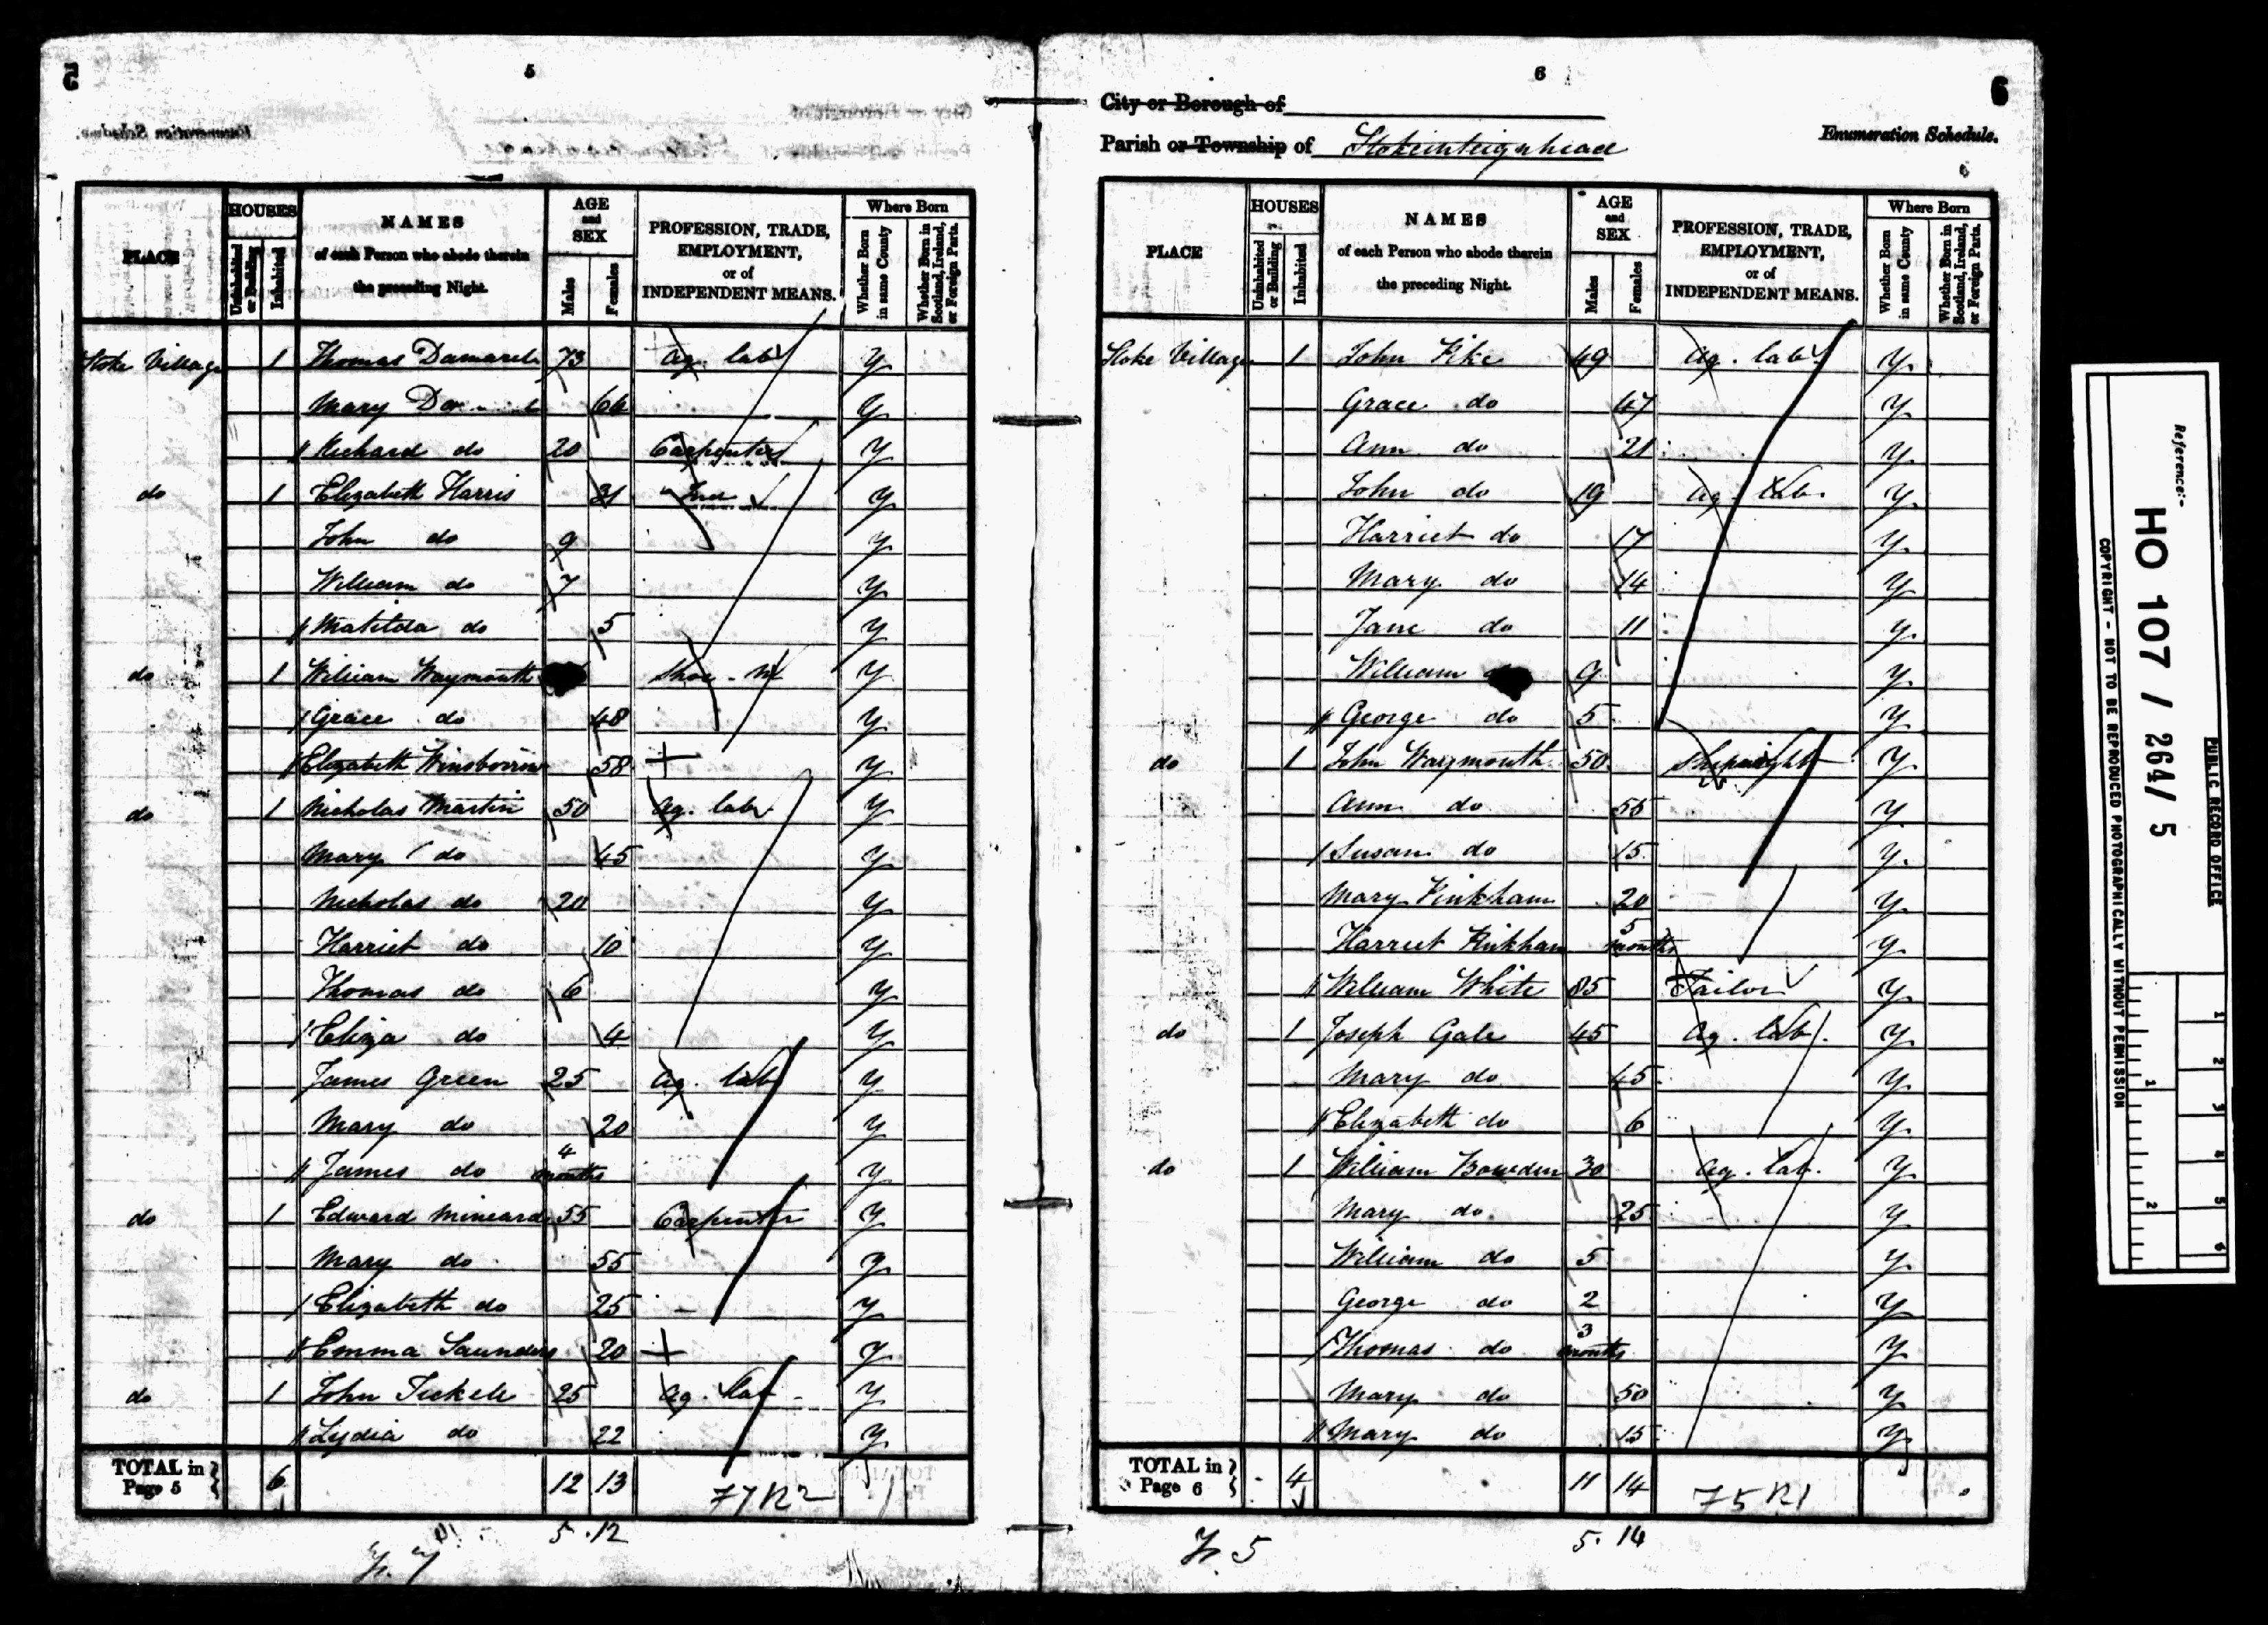 5
5
Enumeration Schedule.
PLACE
HOUSES
Uninhabited or Building
Inhabited
NAMES of each Person who abode therein the preceding Night.
AGE and SEX
Males
Females
PROFESSION, TRADE, EMPLOYMENT, or of INDEPENDENT MEANS.
Where Born
Whether Born in same County
Whether Born in Scotland, Ireland, or Foreign Parts.
Stoke Village 1 Thomas Damarel 73 Ag. lab Y
Mary 66 Y
Richard do 20 Carpenter Y
do 1 Elizabeth Harris 31 Ind Y
John do 9 Y
William do 7 Y
Matilda do 5 Y
do 1 William Waymouth Shoe-M Y
Grace do 48 Y
Elizabeth Winsborrow 58 Y
do 1 Nicholas Martin 50 Ag. lab Y
Mary do 45 Y
Nicholas do 20 Y
Harriet do 10 Y
Thomas do 6 Y
Eliza do 4 Y
James Green 25 Ag. lab Y
Mary do 20 Y
James do 4 months Y
do 1 Edward Mineard 55 Carpenter Y
Mary do 55 Y
Elizabeth do 25 Y
Emma Saunders 20 Y
do 1 John Tickell 25 Ag. lab Y
Lydia do 22 Y
TOTAL in Page 5 } 6 12 13
5 . 12
6
6
City or Borough of
Parish or Township of Stokeinteignhead
Enumeration Schedule.
PLACE
HOUSES
Uninhabited or Building
Inhabited
NAMES of each Person who abode therein the preceding Night.
AGE and SEX
Males
Females
PROFESSION, TRADE, EMPLOYMENT, or of INDEPENDENT MEANS.
Where Born
Whether Born in same County
Whether Born in Scotland, Ireland, or Foreign Parts.
Stoke Village 1 John Pike 49 Ag. lab Y
Grace do 47 Y
Ann do 21 Y
John do 19 Ag. lab. Y
Harriet do 17 Y
Mary do 14 Y
Jane do 11 Y
William 9 Y
George do 5 Y
do 1 John Waymouth 50 Shipwright Y
Ann do 55 Y
Susan do 15 Y
Mary Pinkham 20 Y
Harriet Pinkham 5 months Y
William White 85 Tailor Y
do 1 Joseph Gale 45 Ag. lab. Y
Mary do 45 Y
Elizabeth do 6 Y
do 1 William Bowden 30 Ag. lab. Y
Mary do 25 Y
William do 5 Y
George do 2 Y
Thomas do 3 months Y
Mary do 50 Y
Mary do 15 Y
TOTAL in Page 6 } 4 11 14
5. 14
PUBLIC RECORD OFFICE
Reference:-
HO 107 / 264 / 5
COPYRIGHT - NOT TO BE REPRODUCED PHOTOGRAPHICALLY WITHOUT PERMISSION
1 2 3 4 5 6
1 2